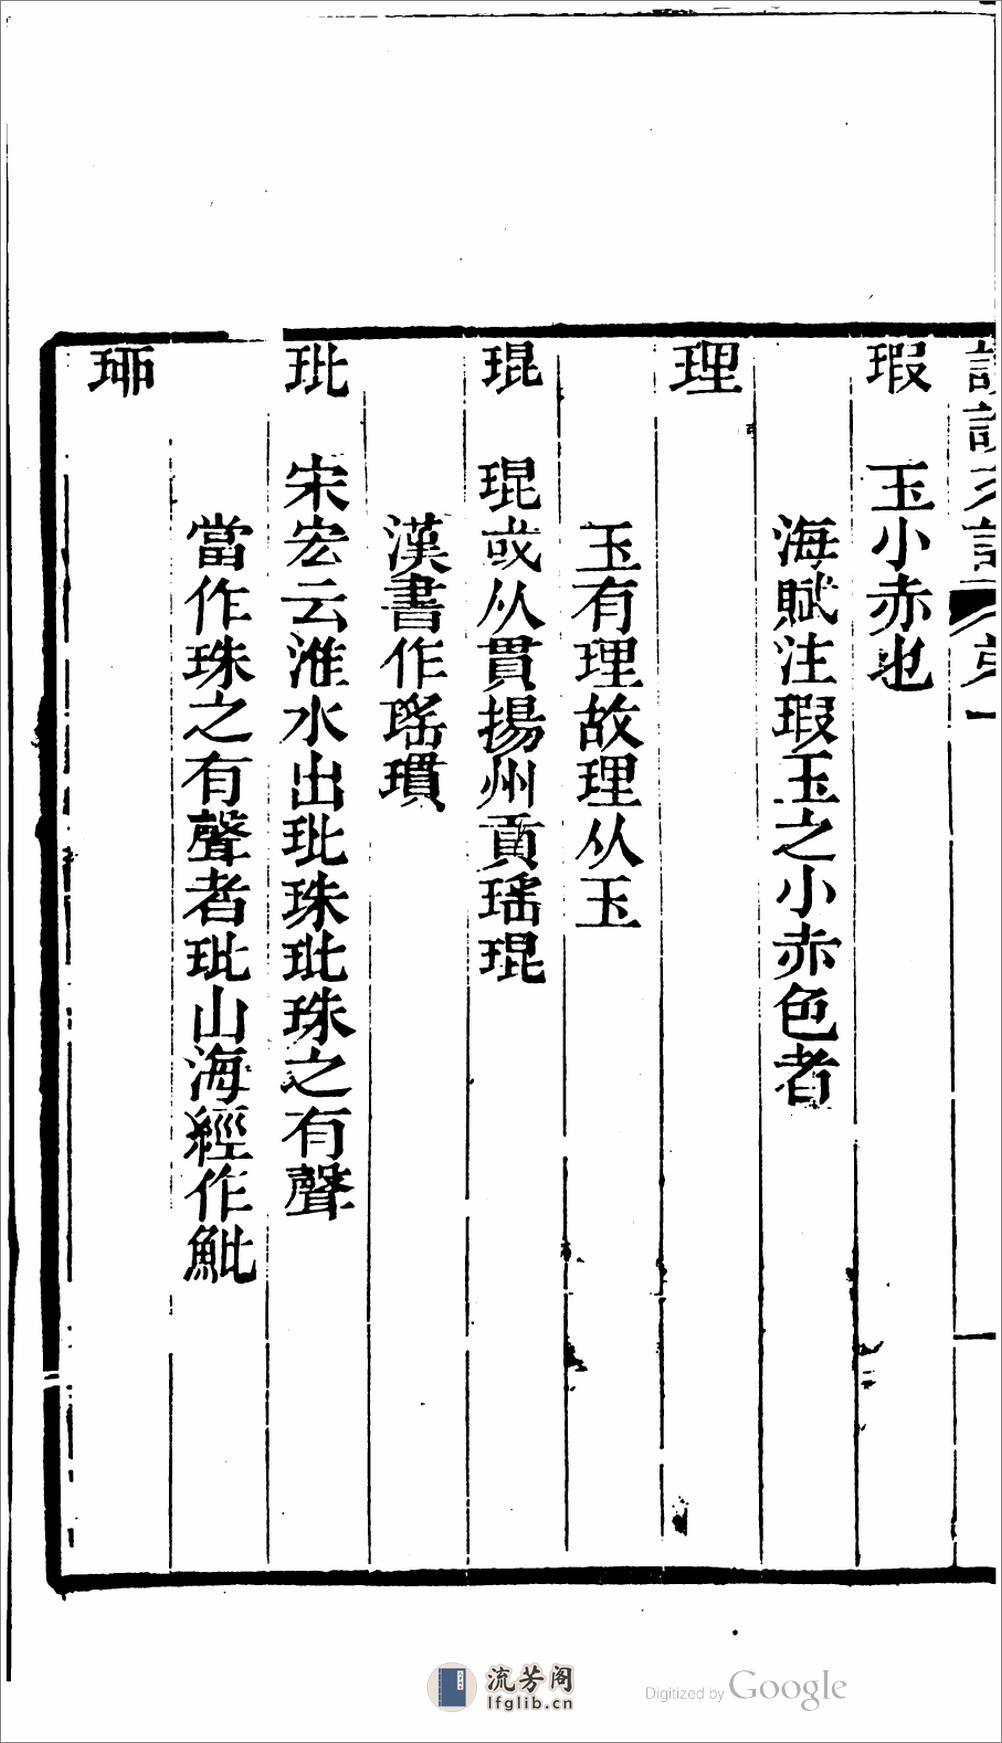 讀說文記 第一
瑕　玉小赤也
海賦注瑕玉之小赤色者
理
玉有理故理从玉
琨　琨或从貫揚州貢瑤琨
漢書作瑤瑻
玭　宋宏云淮水出玭珠玭珠之有聲
當作珠之有聲者玭山海經作魮
流芳阁
lfglib.cn
Digitized by Google